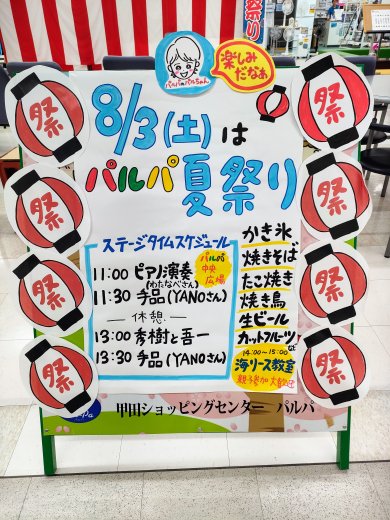 祭り
パルパルちゃん
楽しみ
だなぁ
8/3(土)は
パルパ夏祭り
祭
祭
祭
祭
祭
祭
祭
祭
ステージタイムスケジュール
パルパ
中央
広場
11:00 ピアノ演奏
(わたなべさん)
11:30 手品(YANOさん)
― 休憩 ―
13:00 秀樹と吾一
13:30 手品(YANOさん)
かき氷
焼きそば
たこ焼き
焼き鳥
生ビール
カットフルーツなど
14:00~15:00
海リース教室
親子参加大歓迎
甲田ショッピングセンター パルパ